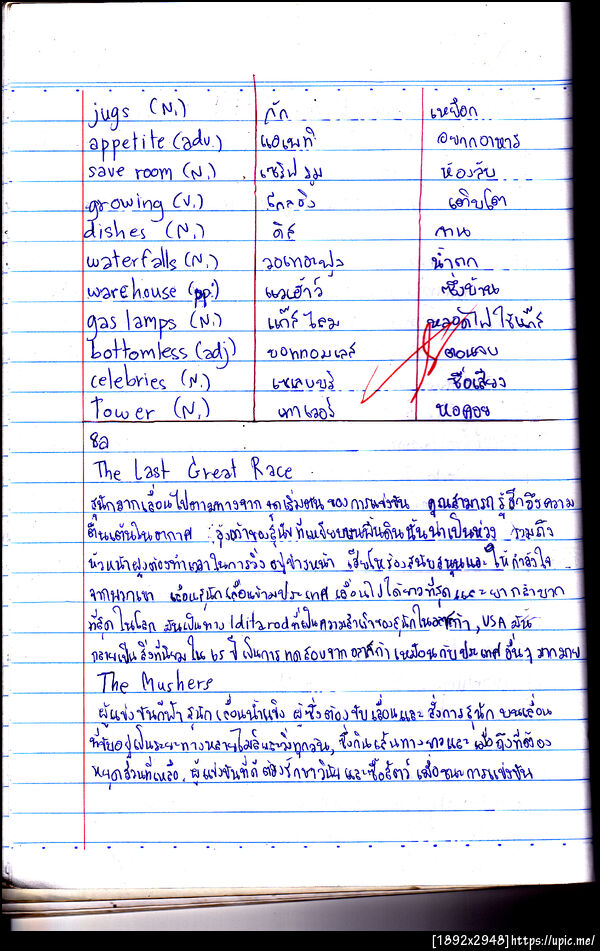 jugs (N.) กัก เหยือก
appetite (adv.) แอเพทิ อยากอาหาร
save room (N.) เซริฟ รูม ห้องลับ
growing (v.) โกลอิ่ง เติบโต
dishes (N.) ดิส จาน
waterfalls (N.) วอเทอะฟูล น้ำตก
warehouse (pp.) แวเฮ้าว์ ซึ่งบ้าน
gas lamps (N.) แก๊ส แลม หลอดไฟใช้แก๊ส
bottomless (adj) บอททอมเลส ตอนจบ
celebries (N.) เซเลบบริ ชื่อเสียง
Tower (N.) ทาวเวอร์ หอคอย
8a
The Last Great Race
สุนัขลากเลื่อนไปตามทางจากจุดเริ่มต้นของการแข่งขัน คุณสามารถรู้สึกถึงความ
ตื่นเต้นในอากาศ อุ้งเท้าของสุนัขที่เหยียบบนพื้นดินนั้นน่าเป็นห่วง รวมถึง
หัวหน้าฝูงต้องทำเวลาในการวิ่ง อยู่ข้างหน้า เสียงโห่ร้องสนับสนุนและให้กำลังใจ
จากพวกเขา เลื่อนสุนัขเลื่อนข้ามประเทศ เลื่อนไปได้ยาวที่สุด และยากลำบาก
ที่สุดในโลก มันเป็นทาง Iditarod ที่เป็นความสำเร็จของสุนัขในอลาสก้า, USA มัน
กลายเป็น สิ่งที่นิยมใน 65 ปี เป็นการทดสอบจาก อลาสก้า เหมือนกับประเทศอื่นๆ มากมาย
The Mushers
ผู้แข่งขันกีฬา สุนัขเลื่อนน้ำแข็ง ผู้ซึ่งต้องขับเลื่อนและสั่งการสุนัข บนเลื่อน
ที่ขับอยู่เป็นระยะทางหลายไมล์และวิ่งทุกวัน, ซึ่งกินเส้นทางยาวและ เมื่อถึงที่ต้อง
หยุดส่วนที่เหลือ. ผู้แข่งขันที่ดีต้องรักษาวินัยและซื่อสัตว์ เพื่อชนะการแข่งขัน
[1892x2948]https://upic.me/